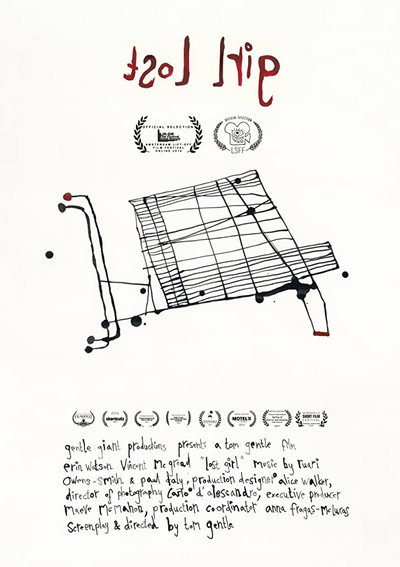 tsol lrig
OFFICIAL SELECTION
AMSTERDAM LIFT-OFF
FILM FESTIVAL
ONLINE
OFFICIAL SELECTION
LSFF
shortcutz
MOTELX
SHORT FILM
gentle giant productions presents a tom gentle film
erin watson Vincent McGread "lost girl" music by ruari
owens-smith & paul daly, production designer alice walker,
director of photography Carlo d'alessandro, executive producer
Maeve McMahon, production coordinator anna fragas-mclucas
Screenplay & directed by tom gentle